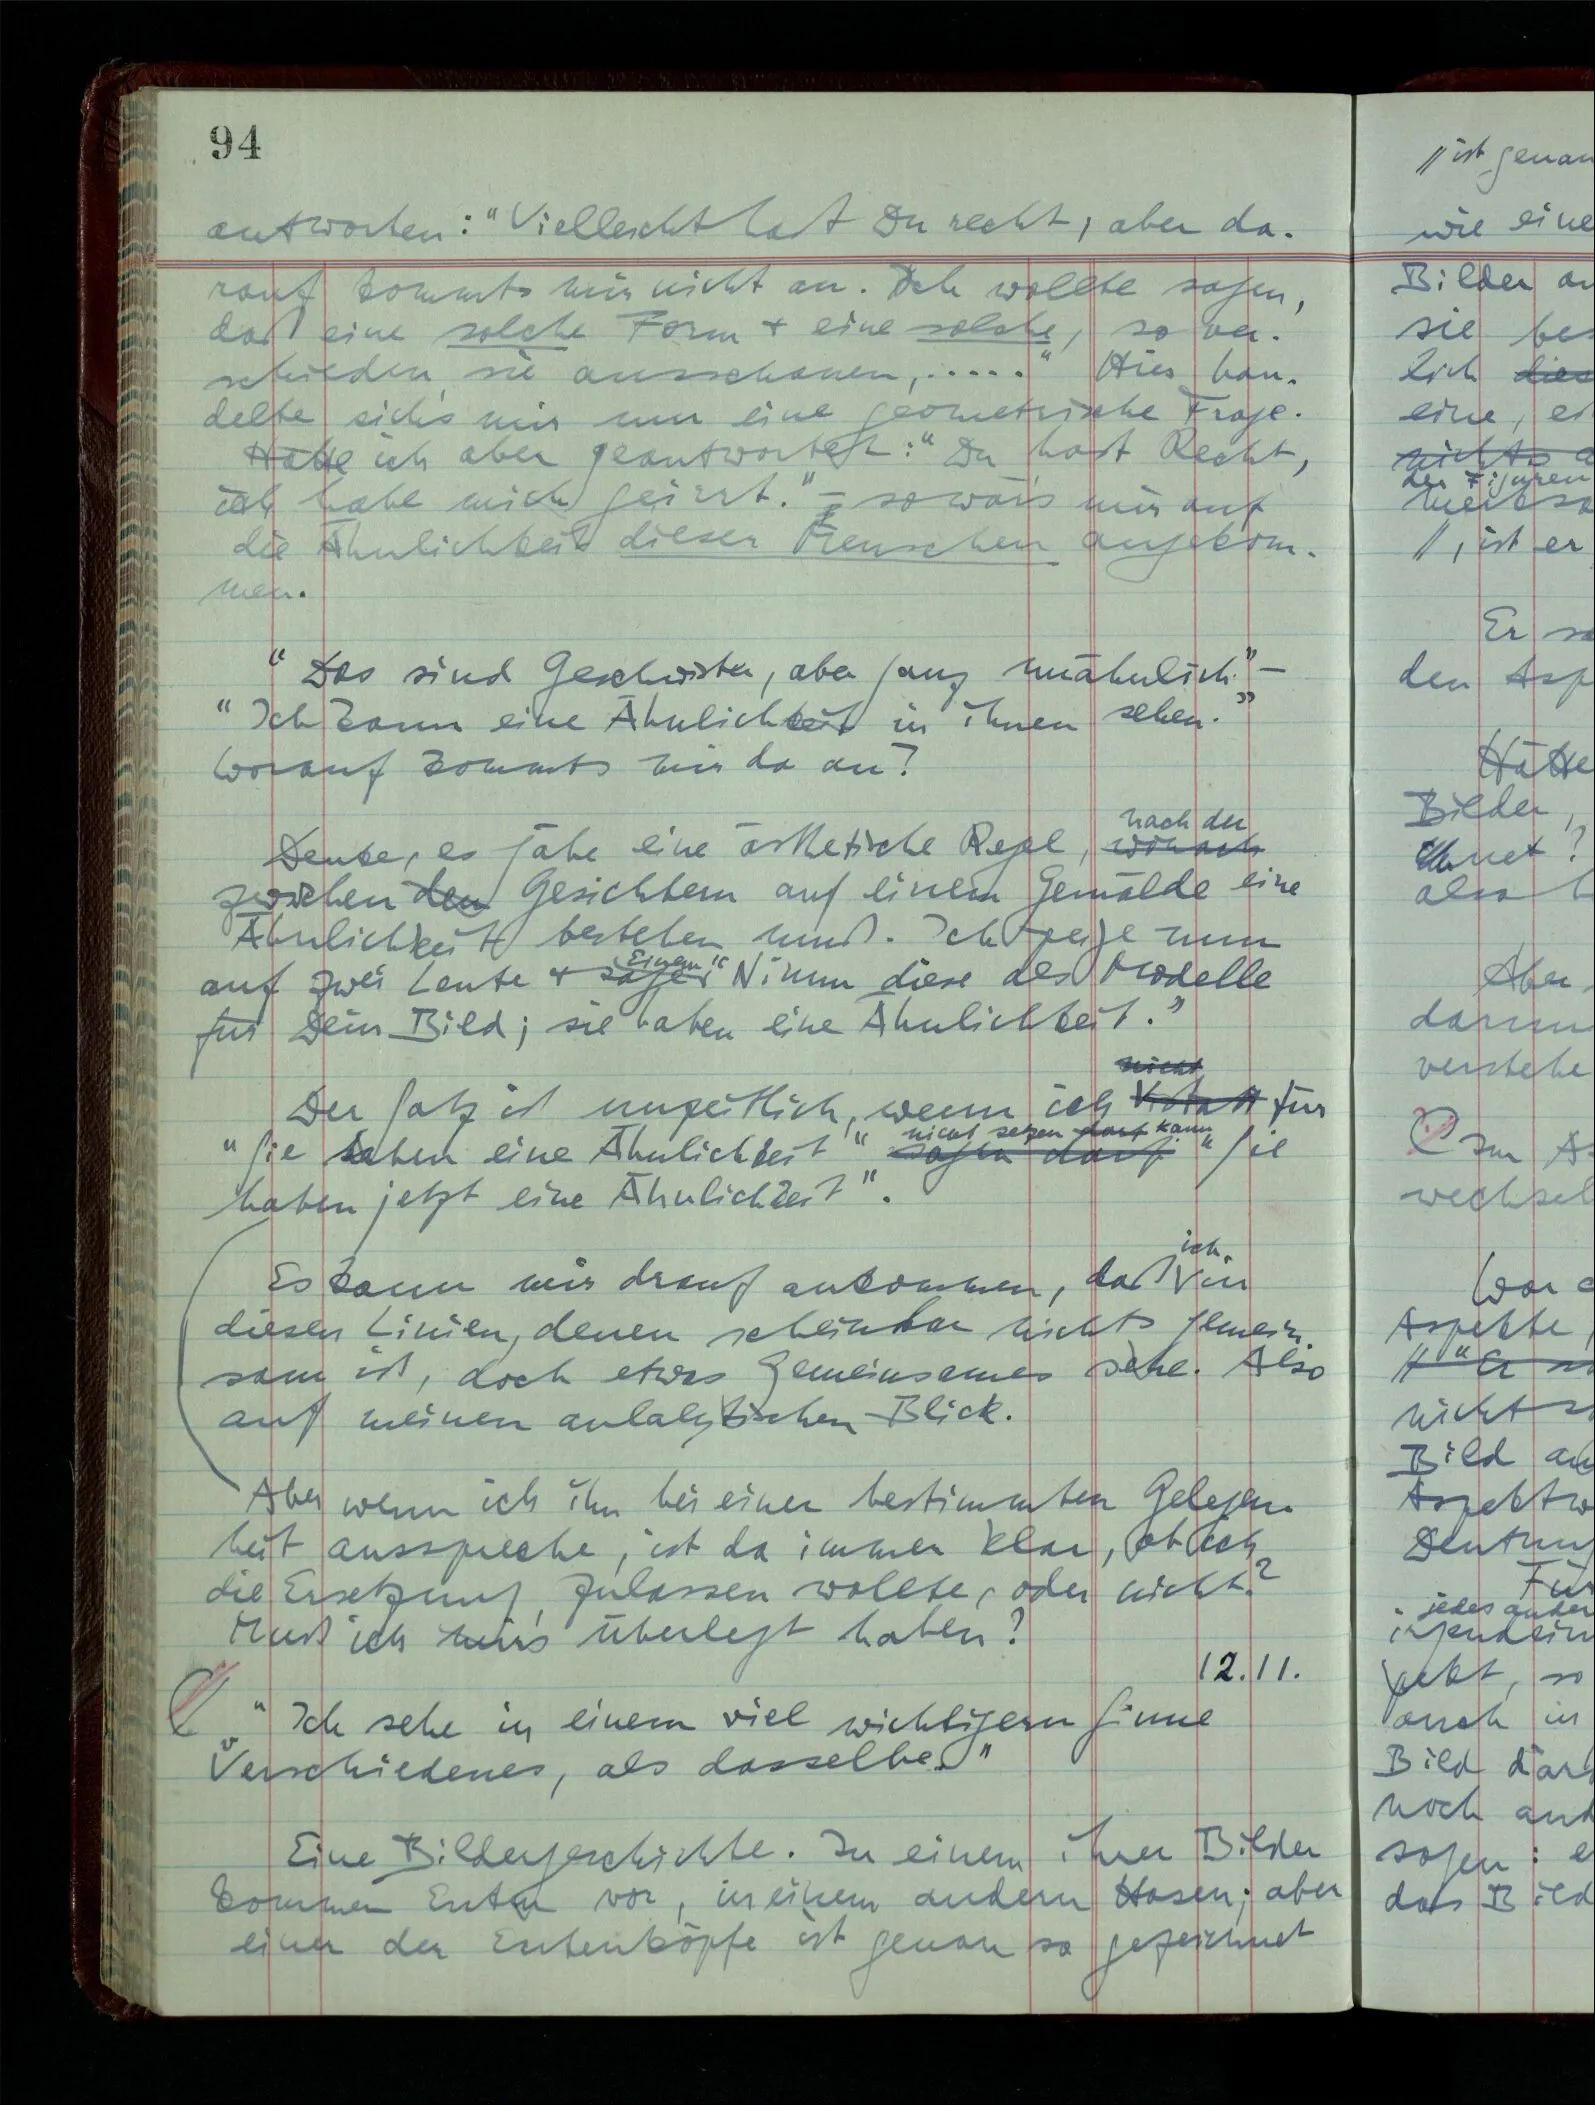 94
antworten: "Vielleicht hast Du recht, aber da-
rauf kommts mir nicht an. Ich wollte sagen,
daß eine solche Form + eine solche, so ver-
schieden sie ausschauen, ....." Hier han-
delte sich's mir um eine geometrische Frage.
Hätte ich aber geantwortet: "Du hast Recht,
ich habe mich geirrt." – so wär's mir auf
die Ähnlichkeit dieser Menschen angekom-
men.
"Das sind Geschwister, aber ganz unähnlich." –
"Ich kann eine Ähnlichkeit in ihnen sehen."
Worauf kommts mir da an?
nach der
Denke, es gäbe eine ästhetische Regel, wonach
zwischen den Gesichtern auf einem Gemälde eine
Ähnlichkeit bestehen muß. Ich zeige nun
Einem
auf zwei Leute + sage: "Nimm diese als Modelle
für Dein Bild; sie haben eine Ähnlichkeit."
nicht
Der Satz ist unzeitlich, wenn ich statt für
nicht setzen darf kann
"Sie haben eine Ähnlichkeit" sagen darf "Sie
haben jetzt eine Ähnlichkeit".
ich
Es kann mir drauf ankommen, daß in
diesen Linien, denen scheinbar nichts gemein-
sam ist, doch etwas Gemeinsames sehe. Also
auf meinen anlalytischen Blick.
Aber wenn ich ihn bei einer bestimmten Gelegen-
heit ausspreche, ist da immer klar, ob ich
die Ersetzung zulassen wollte, oder nicht?
Muß ich mir's überlegt haben?
12.11.
"Ich sehe in einem viel wichtigern Sinne
Verschiedenes, als dasselbe."
Eine Bildergeschichte. In einem ihrer Bilder
kommen Enten vor, in einem andern Hasen; aber
einer der Entenköpfe ist genau so gezeichnet
// ist genau
wie eine
Bilder
sie
lich
eine,
nichts
der Figuren
//, ist er
Er
den Asp
Hätte
Bilder,
also
Aber
darum
verstehe
Im
wechsel
War
Aspekte
nicht
Bild
Aspektw
Deutung
Für
jedes ander
irgendein
so
auch in
Bild
noch
sagen:
das Bild